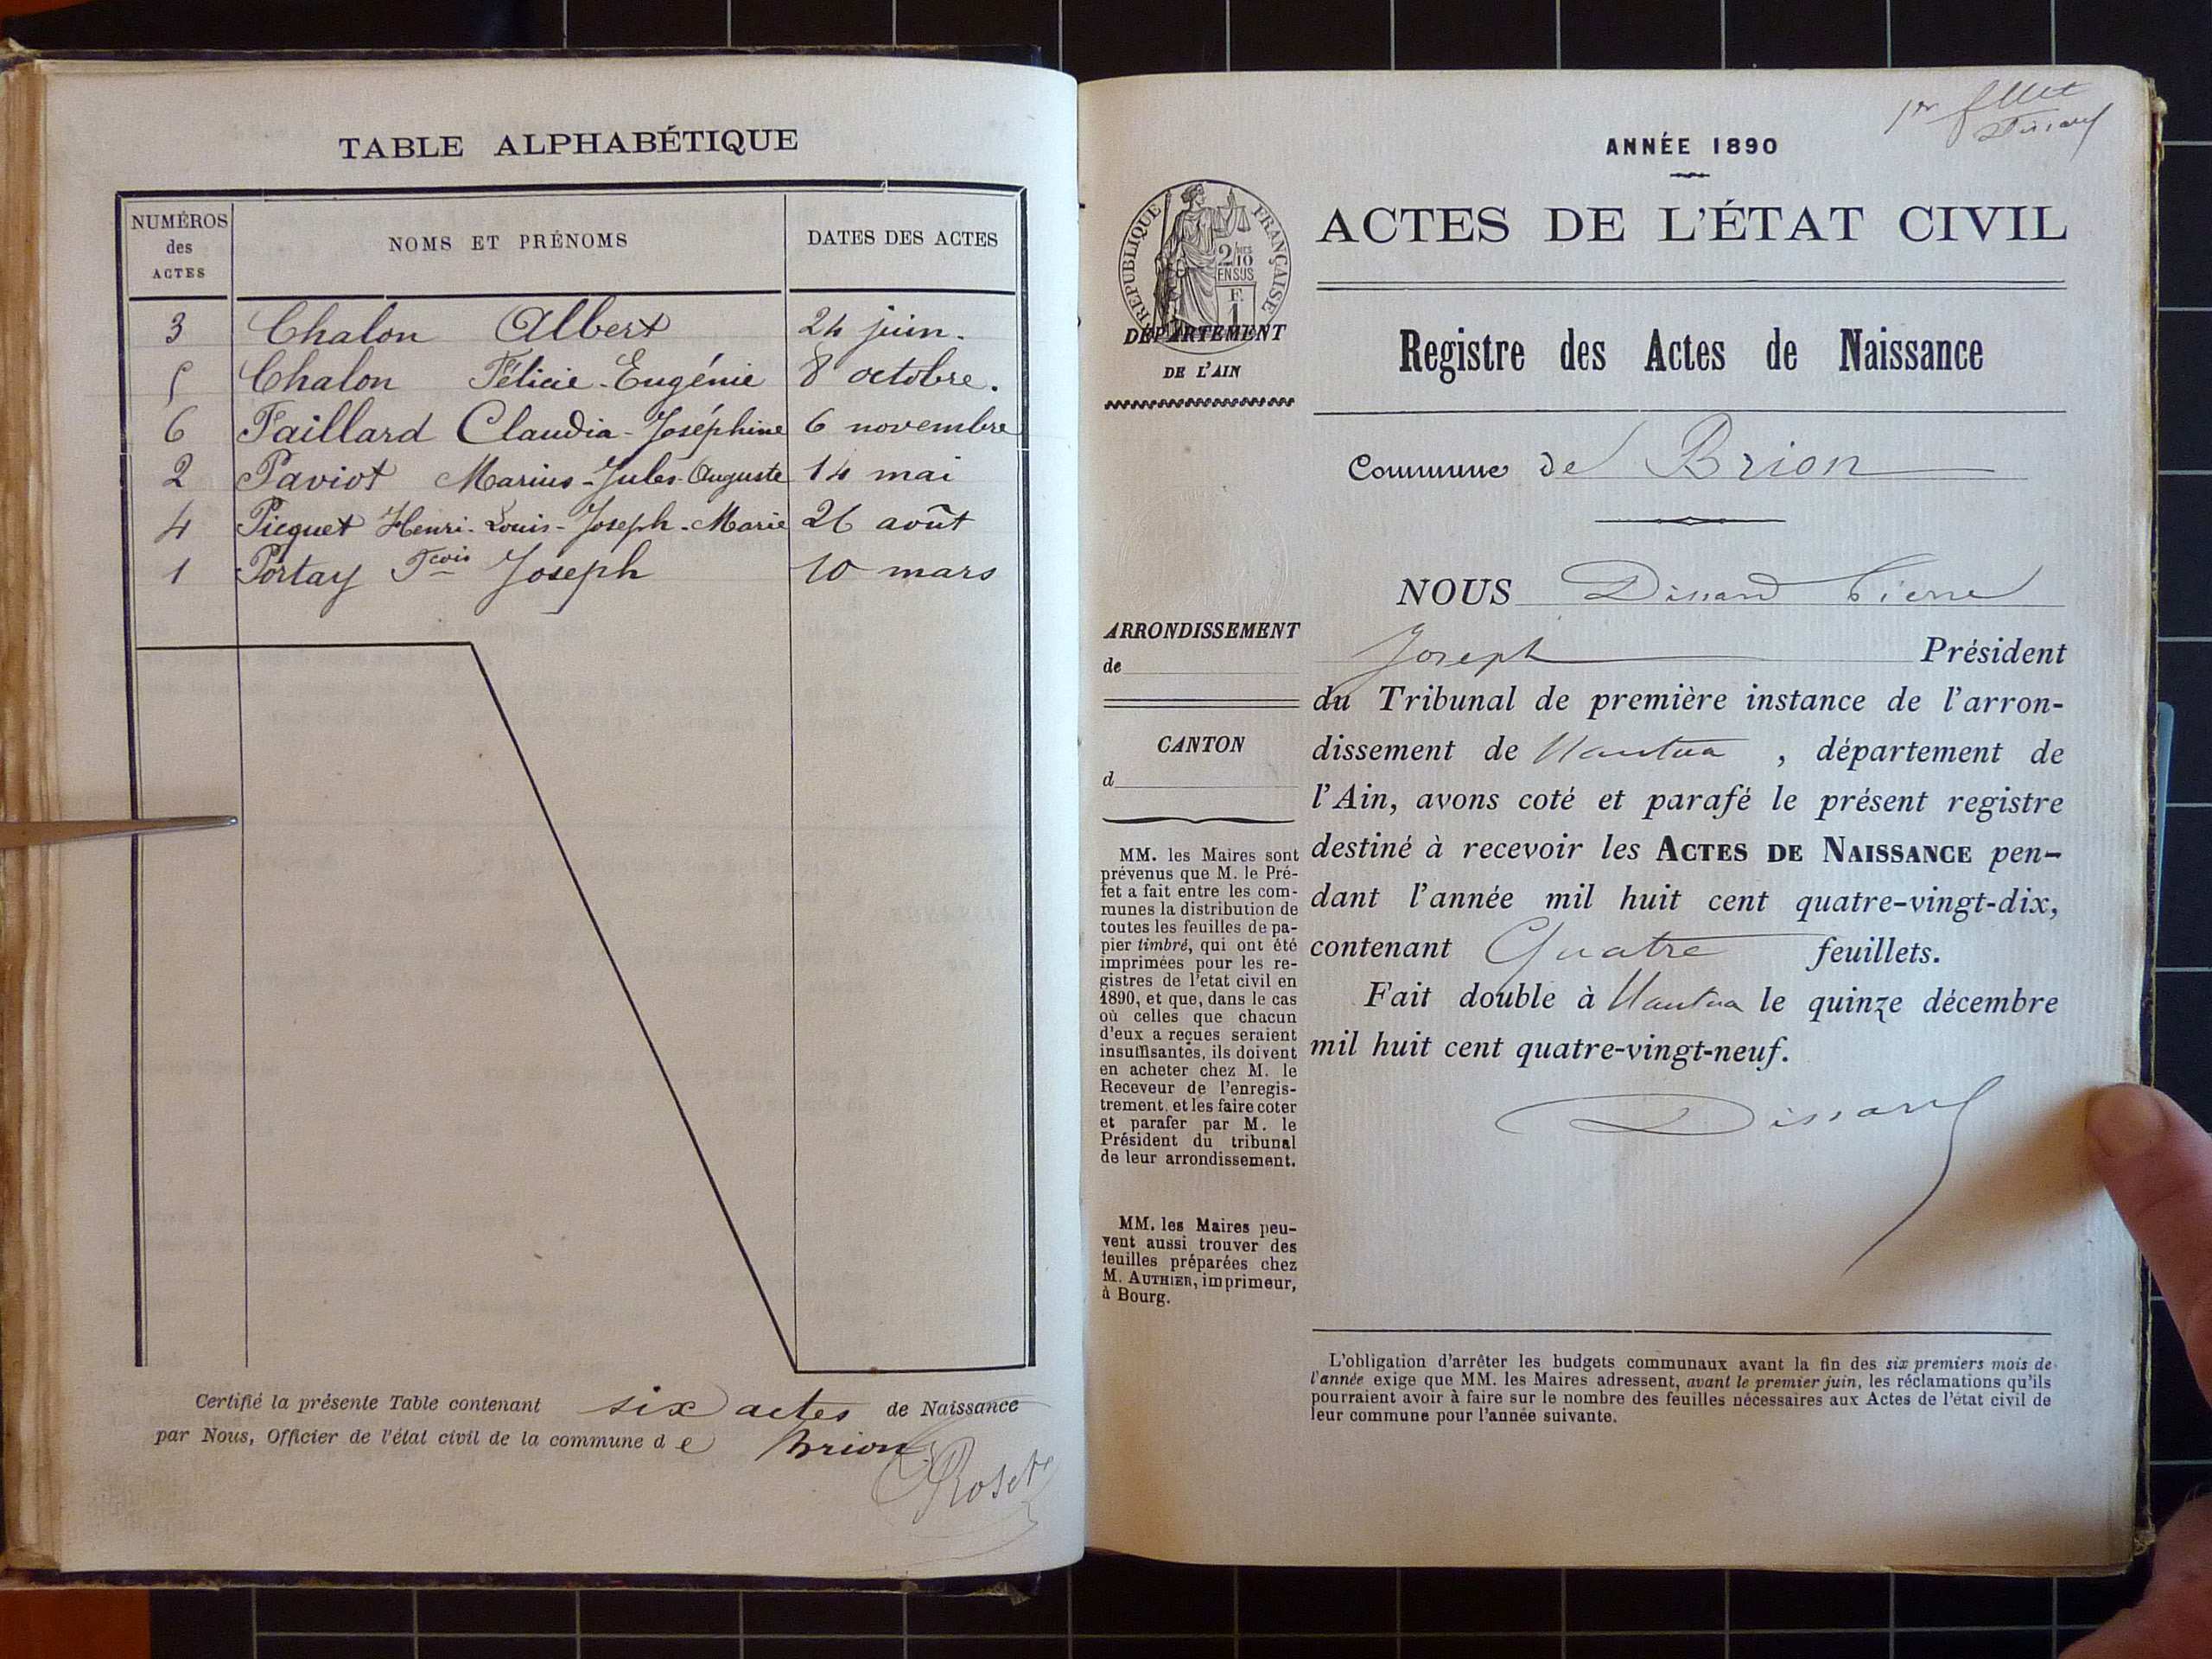 TABLE ALPHABÉTIQUE
NUMÉROS
des
ACTES
NOMS ET PRÉNOMS
DATES DES ACTES
3 Chalon Albert 24 juin.
5 Chalon Félicie-Eugénie 8 octobre.
6 Faillard Claudia-Joséphine 6 novembre
2 Paviot Marius-Jules-Auguste 14 mai
4 Picquet Henri-Louis-Joseph-Marie 26 août
1 Portay Fcois Joseph 10 mars
Certifié la présente Table contenant six actes de Naissance
par Nous, Officier de l'état civil de la commune de brion
Roset
1er fllet
Dissard
ANNÉE 1890
ACTES DE L'ÉTAT CIVIL
RÉPUBLIQUE FRANÇAISE
2/10
EN SUS
F.
1
DÉPARTEMENT
DE L'AIN
Registre des Actes de Naissance
Commune de Brion
ARRONDISSEMENT
de
CANTON
d
MM. les Maires sont
prévenus que M. le Pré-
fet a fait entre les com-
munes la distribution de
toutes les feuilles de pa-
pier timbré, qui ont été
imprimées pour les re-
gistres de l'etat civil en
1890, et que, dans le cas
où celles que chacun
d'eux a reçues seraient
insuffisantes, ils doivent
en acheter chez M. le
Receveur de l'enregis-
trement. et les faire coter
et parafer par M. le
Président du tribunal
de leur arrondissement.
MM. les Maires peu-
vent aussi trouver des
feuilles préparées chez
M. AUTHIER, imprimeur,
à Bourg.
NOUS Dissard Pierre
Joseph Président
du Tribunal de première instance de l'arron-
dissement de Nantua , département de
l'Ain, avons coté et parafé le présent registre
destiné à recevoir les ACTES DE NAISSANCE pen-
dant l'année mil huit cent quatre-vingt-dix,
contenant Quatre feuillets.
Fait double à Nantua le quinze décembre
mil huit cent quatre-vingt-neuf.
Dissard
L'obligation d'arrêter les budgets communaux avant la fin des six premiers mois de
l'année exige que MM. les Maires adressent, avant le premier juin, les réclamations qu'ils
pourraient avoir à faire sur le nombre des feuilles nécessaires aux Actes de l'état civil de
leur commune pour l'année suivante.